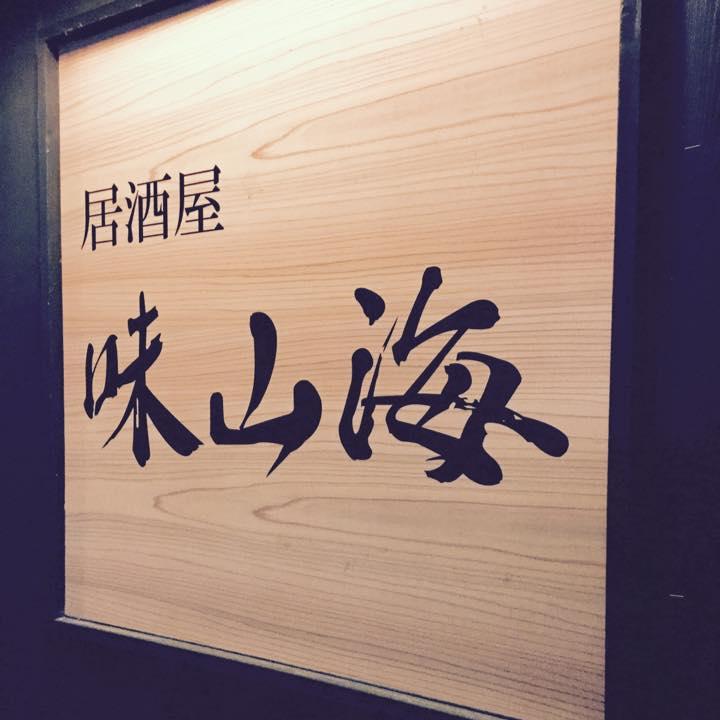 居酒屋
味山海